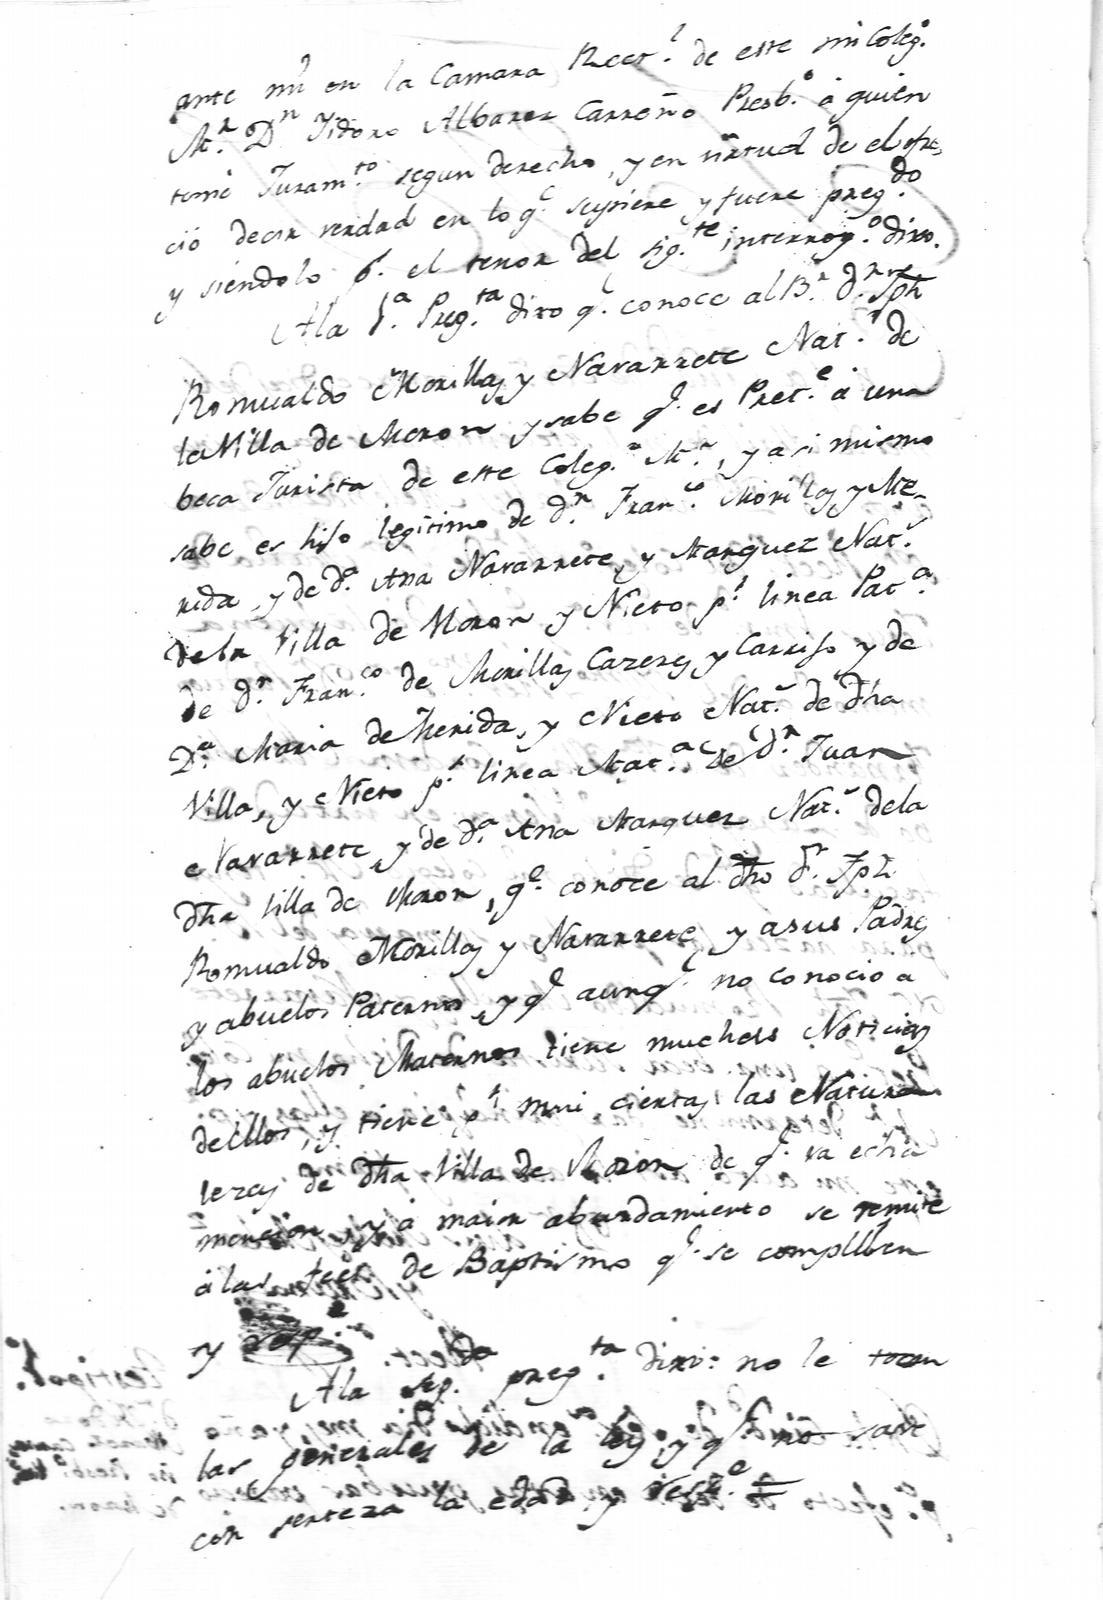 ante mi en la Camara Rect.l de este mi Coleg.o
Mr. Dn Isidoro Albarez Carreño Presb.o á quien
tomé Juram.to segun derecho, y en virtud de el ofre,
ció decir verdad en lo q.e supiere y fuere preg.do
y siendolo p.r el tenor del sig.te interrog.o dixo.
Ala 1.a Preg.ta dixo q.e conoce al B.r d.n Jph
Romualdo Morillas y Navarrete Nat.l de
la Villa de Moron y sabe q.e es Pret.e á una
beca Jurista de este Coleg.o M.r, y asi mismo
sabe es hijo legitimo de d.n Fran.co Morillas y Me-
rida, y de d.a Ana Navarrete, y Marquez Nat.s
de la Villa de Moron y Nieto p.r linea Pat.a
de d.n Fran.co de Morillas Cazeres y Carriso y de
D.a Maria de Merida, y Nieto Nat.s de dha
Villa, y Nieto p.r linea Mat.a de d.n Juan
Navarrete, y de d.a Ana Marquez Nat.s dela
dha Villa de Moron, q.e conoce al dho d.n Jph
Romualdo Morillas y Navarrete, y asus Padres
y abuelos Paternos, y q.e aunq.e no conocio a
los abuelos Maternos tiene muchas Noticias
de ellos, y tiene p.r mui ciertas las Natura
lezas de dha Villa de Moron de q.e va echa
mencion, y á maior abundamiento se remite
á las fees de Baptismo q.e se compllben
y resp.e
Ala seg.da preg.ta dixo: no le tocan
las generales de la ley, y q.e no save
con serteza la edad, y resp.e